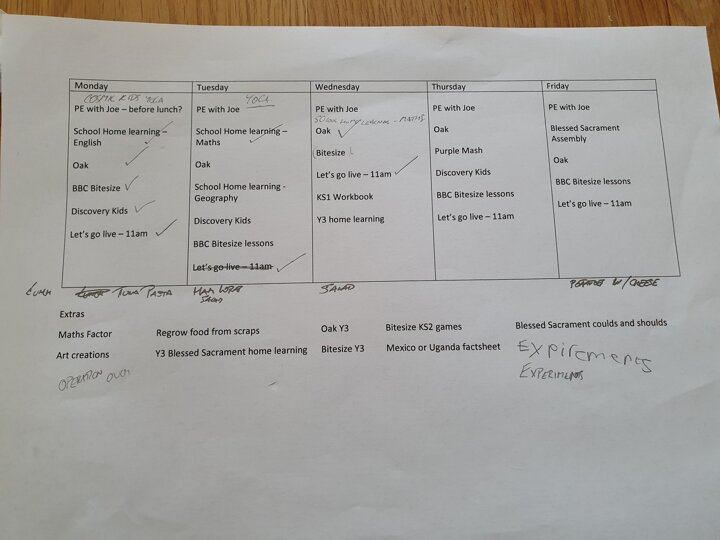 Monday
COSMIC KIDS YOGA
PE with Joe – before lunch?
School Home learning –
English
Oak
BBC Bitesize
Discovery Kids
Let's go live – 11am
Tuesday
YOGA
PE with Joe
School Home learning –
Maths
Oak
School Home learning -
Geography
Discovery Kids
BBC Bitesize lessons
Let's go live – 11am
Wednesday
PE with Joe
SCHOOL HOME LEARNING - MATHS
Oak
Bitesize
Let's go live – 11am
KS1 Workbook
Y3 home learning
Thursday
PE with Joe
Oak
Purple Mash
Discovery Kids
BBC Bitesize lessons
Let's go live – 11am
Friday
PE with Joe
Blessed Sacrament
Assembly
Oak
BBC Bitesize lessons
Let's go live – 11am
LUNCH TUNA PASTA HAM WRAP SALAD W/CHEESE
Extras
Maths Factor Regrow food from scraps Oak Y3 Bitesize KS2 games Blessed Sacrament coulds and shoulds
Art creations Y3 Blessed Sacrament home learning Bitesize Y3 Mexico or Uganda factsheet
Expirements
EXPERIMENTS
OPERATION OUCH